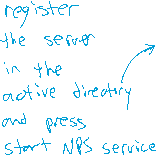 register
the server
in the
active directory
and press
start NPS service